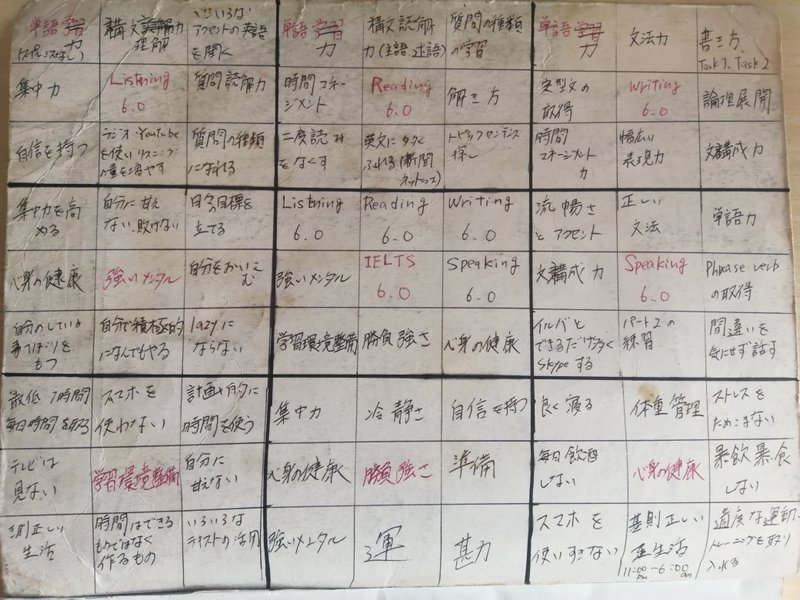 単語学習
力
(スペルミスなし)
構文読解力
理解
いろいろな
アクセントの英語
を聞く
単語学習
力
構文読解
力(主語、述語)
質問の種類
の学習
単語学習
力
文法力
書き方
Task 1. Task 2
集中力
Listning
6.0
質問読解力
時間マネー
ジメント
Reading
6.0
解き方
定型文の
取得
Writing
6.0
論理展開
自信を持つ
ラジオ・YouTube
を使いリスニング
の量を増やす
質問の種類
になれる
二度読み
をなくす
英文に多く
ふれる(新聞
ネットニュース)
トピックセンテンス
探し
時間
マネージメント
力
幅広い
表現力
文構成力
集中力を高
める
自分に甘え
ない、負けない
日々の目標を
立てる
Listning
6.0
Reading
6.0
Writing
6.0
流暢さ
とアクセント
正しい
文法
単語力
心身の健康
強いメンタル
自分をおいこ
む
強いメンタル
IELTS
6.0
Speaking
6.0
文構成力
Speaking
6.0
Phrase verb
の取得
自分のしている
事にほこりを
もつ
自分で積極的
になんでもやる
lazyに
ならない
学習環境整備
勝負強さ
心身の健康
イルバと
できるだけ多く
Skypeする
パート2の
練習
間違いを
気にせず話す
最低7時間
毎日時間を取る
スマホを
使わない
計画的に
時間を使う
集中力
冷静さ
自信を持つ
良く寝る
体重管理
ストレスを
ためこまない
テレビは
見ない
学習環境整備
自分に
甘えない
心身の健康
勝負強さ
準備
毎日飲酒
しない
心身の健康
暴飲暴食
しない
規則正しい
生活
時間はできる
ものではなく
作るもの
いろいろな
テキストの活用
強いメンタル
運
甚力
スマホを
使いすぎない
基則正しい
生活
11:00pm-6:00am
適度な運動、
トレーニングを取り
入れる